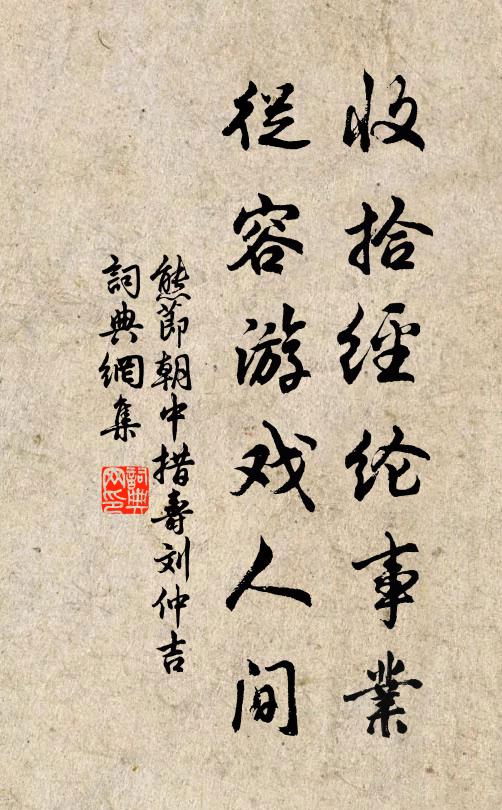 收拾經纶事業
從容游戏人间
熊節朝中措壽刘仲吉
詞典網集
詞典網印